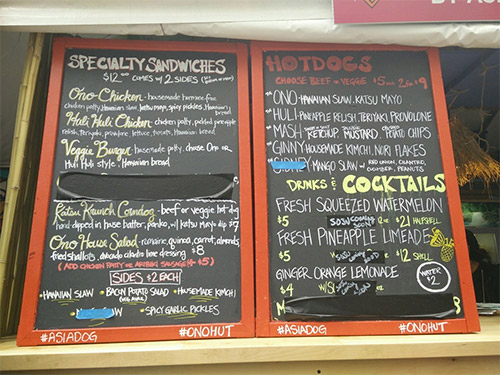 BY AS
SPECIALTY SANDWICHES
$12.00 COMES W/ 2 SIDES
Ono-Chicken - housemade hormone-free
chicken patty, Hawaiian slaw, katsu mayo, spicy pickles, Hawaiian
bread
Huli Huli Chicken chicken patty, pickled pineapple
relish, teriyaki, provolone, lettuce, tomato, Hawaiian bread
Veggie Burger - housemade patty, choose Ono or
Huli Huli style. Hawaiian bread
Katsu Krunch Corndog - beef or veggie hot dog
hand dipped in house batter, panko, w/ katsu mayo dip $9
Ono House Salad - romaine, quinoa, carrot, almonds,
fried shallots, avocado cilantro lime dressing $8
(ADD CHICKEN PATTY OR SAUSAGE + $5)
SIDES $2 EACH
• HAWAIIAN SLAW • BACON POTATO SALAD • HOUSEMADE KIMCHI
W • SPICY GARLIC PICKLES
#ASIADOG #ONOHUT
HOTDOGS
CHOOSE BEEF OR VEGGIE $5 2 for $9
ONO HAWAIIAN SLAW, KATSU MAYO
HULI PINEAPPLE RELISH, TERIYAKI, PROVOLONE
MASH KETCHUP, MUSTARD, POTATO CHIPS
GINNY HOUSEMADE KIMCHI, NORI FLAKES
SIDNEY MANGO SLAW W/ RED ONION, CILANTRO,
CUCUMBER, PEANUTS
DRINKS & COCKTAILS
FRESH SQUEEZED WATERMELON
$5 SOJU COMING SOON $21 HALFSHELL
FRESH PINEAPPLE LIMEADE
$5 $12 SHELL
GINGER ORANGE LEMONADE
$4 W/S
WATER $2
M
#ASIADOG #ONOHUT